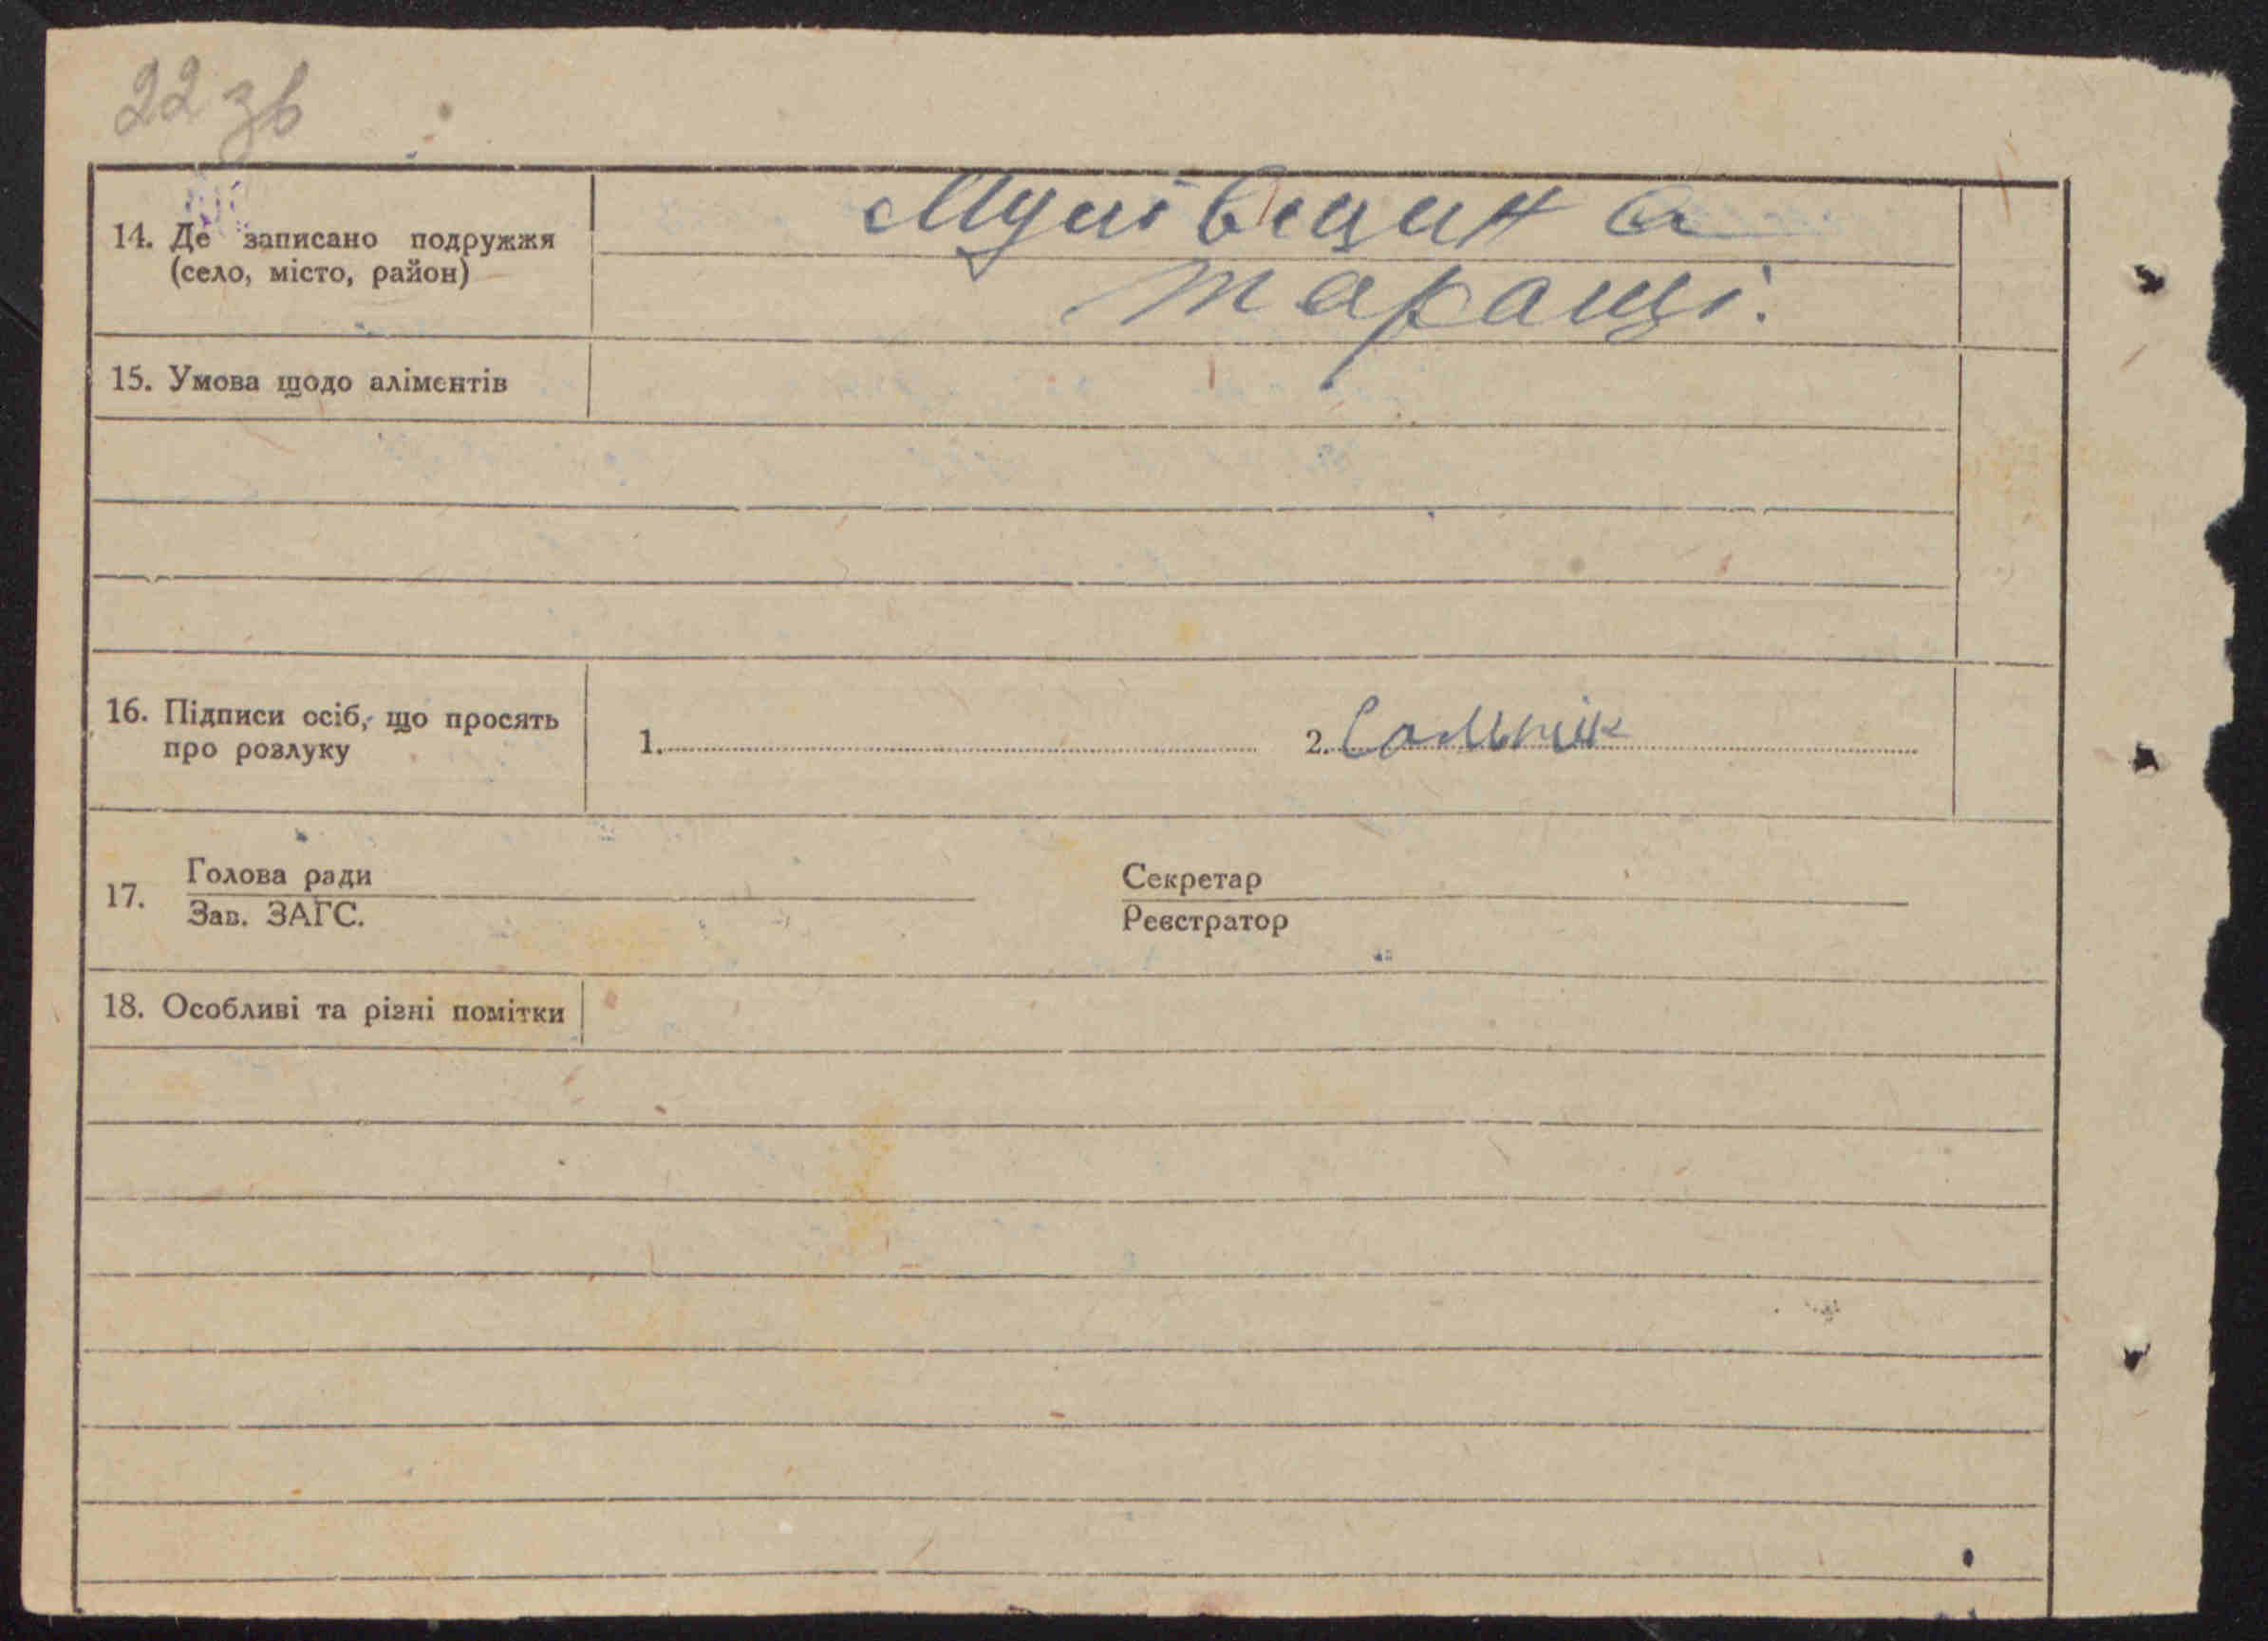 22 зв
14. Де записано подружжя
(село, місто, район)
Таращі.
15. Умова щодо аліментів
16. Підписи осіб, що просять
про розлуку
1.
2. Сольнік
17.
Голова ради
Зав. ЗАГС.
Секретар
Реєстратор
18. Особливі та різні помітки